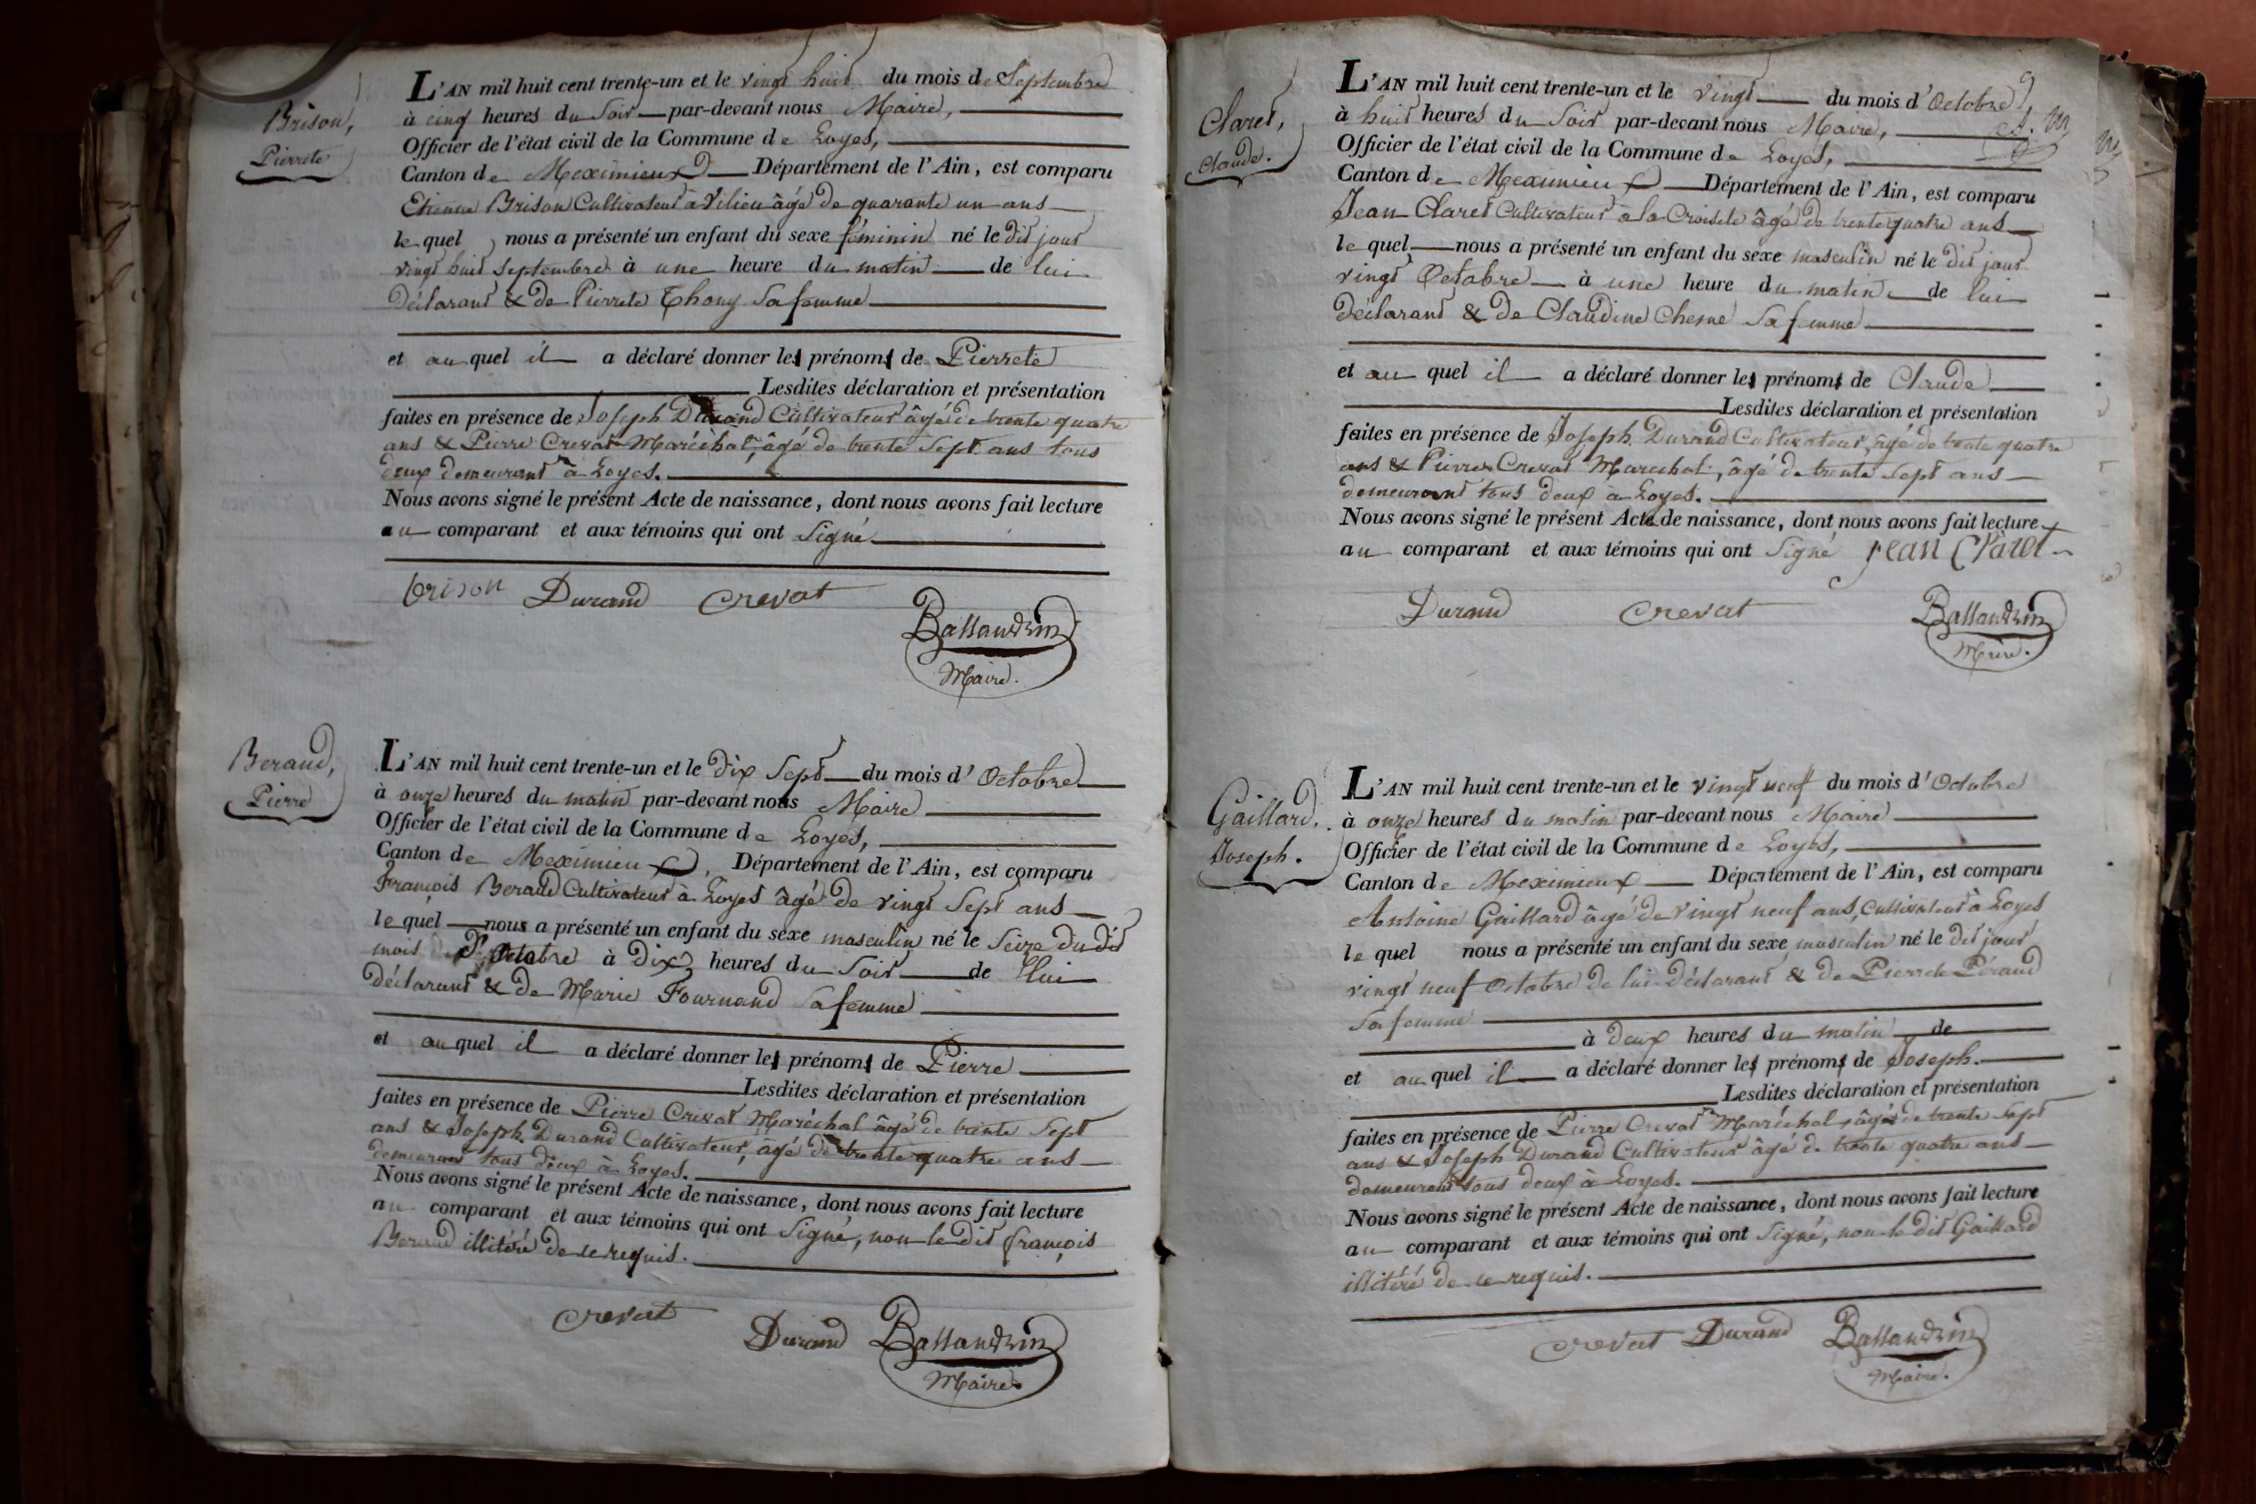 Brison,
Pierrete
L'AN mil huit cent trente-un et le vingt huit du mois de Septembre
à cinq heures du Soir par-devant nous Maire,
Officier de l'état civil de la Commune de Loyes,
Canton de Meximieux Département de l'Ain, est comparu
Etienne Brison Cultivateur à Vilieu âgé de quarante un ans
le quel nous a présenté un enfant du sexe féminin né le dit jour
vingt huit Septembre à une heure du matin de lui
Déclarant & de Pierrete Thony Sa femme
et au quel il a déclaré donner les prénoms de Pierrete
Lesdites déclaration et présentation
faites en présence de Joseph Durand Cultivateur âgé de trente quatre
ans & Pierre Crevat Maréchal, âgé de trente Sept ans tous
deux demeurant à Loyes.
Nous avons signé le présent Acte de naissance, dont nous avons fait lecture
au comparant et aux témoins qui ont Signé
brison Durand Crevat
Ballandrin
Maire.
Beraud,
Pierre
L'AN mil huit cent trente-un et le dix Sept du mois d'Octobre
à onze heures du matin par-devant nous Maire
Officier de l'état civil de la Commune de Loyes,
Canton de Meximieux, Département de l'Ain, est comparu
François Beraud Cultivateur à Loyes âgé de vingt Sept ans
le quel nous a présenté un enfant du sexe masculin né le Seize du dit
mois d'Octobre à dix heures du Soir de lui
déclarant & de Marie Fournand Sa femme
et au quel il a déclaré donner les prénoms de Pierre
Lesdites déclaration et présentation
faites en présence de Pierre Crevat Maréchal âgé de trente Sept
ans & Joseph Durand Cultivateur, âgé de trente quatre ans
demeurant tous deux à Loyes.
Nous avons signé le présent Acte de naissance, dont nous avons fait lecture
au comparant et aux témoins qui ont Signé, non le dit françois
Beraud illitéré de ce requis.
Crevat Durand Ballandrin
Maire
Claret,
Claude.
L'AN mil huit cent trente-un et le vingt du mois d'Octobre
à huit heures du Soir par-devant nous Maire,
Officier de l'état civil de la Commune de Loyes,
Canton de Meximieux Département de l'Ain, est comparu
Jean Claret Cultivateur à la Croisete âgé de trente quatre ans
le quel nous a présenté un enfant du sexe masculin né le dit jour
vingt Octobre à une heure du matin de lui
déclarant & de Claudine Chesne Sa femme
et au quel il a déclaré donner les prénoms de Claude
Lesdites déclaration et présentation
faites en présence de Joseph Durand Cultivateur, âgé de trente quatre
ans & Pierre Crevat Marechal, âgé de trente Sept ans
demeurant tous deux à Loyes.
Nous avons signé le présent Acte de naissance, dont nous avons fait lecture
au comparant et aux témoins qui ont Signé jean Claret
Durand Crevat Ballandrin
Maire.
Gaillard,
Joseph.
L'AN mil huit cent trente-un et le vingt neuf du mois d'Octobre
à onze heures du matin par-devant nous Maire
Officier de l'état civil de la Commune de Loyes,
Canton de Meximieux Département de l'Ain, est comparu
Antoine Gaillard âgé de vingt neuf ans, Cultivateur à Loyes
le quel nous a présenté un enfant du sexe masculin né le dit jour
vingt neuf Octobre de lui déclarant & de Pierrete Péraud
Sa femme
à deux heures du matin de
et au quel il a déclaré donner les prénoms de Joseph.
Lesdites déclaration et présentation
faites en présence de Pierre Crevat Maréchal, âgé de trente Sept
ans & Joseph Durand Cultivateur âgé de trente quatre ans
demeurent tous deux à Loyes.
Nous avons signé le présent Acte de naissance, dont nous avons fait lecture
au comparant et aux témoins qui ont Signé, non le dit Gaillard
illitéré de ce requis.
Crevat Durand Ballandrin
Maire.